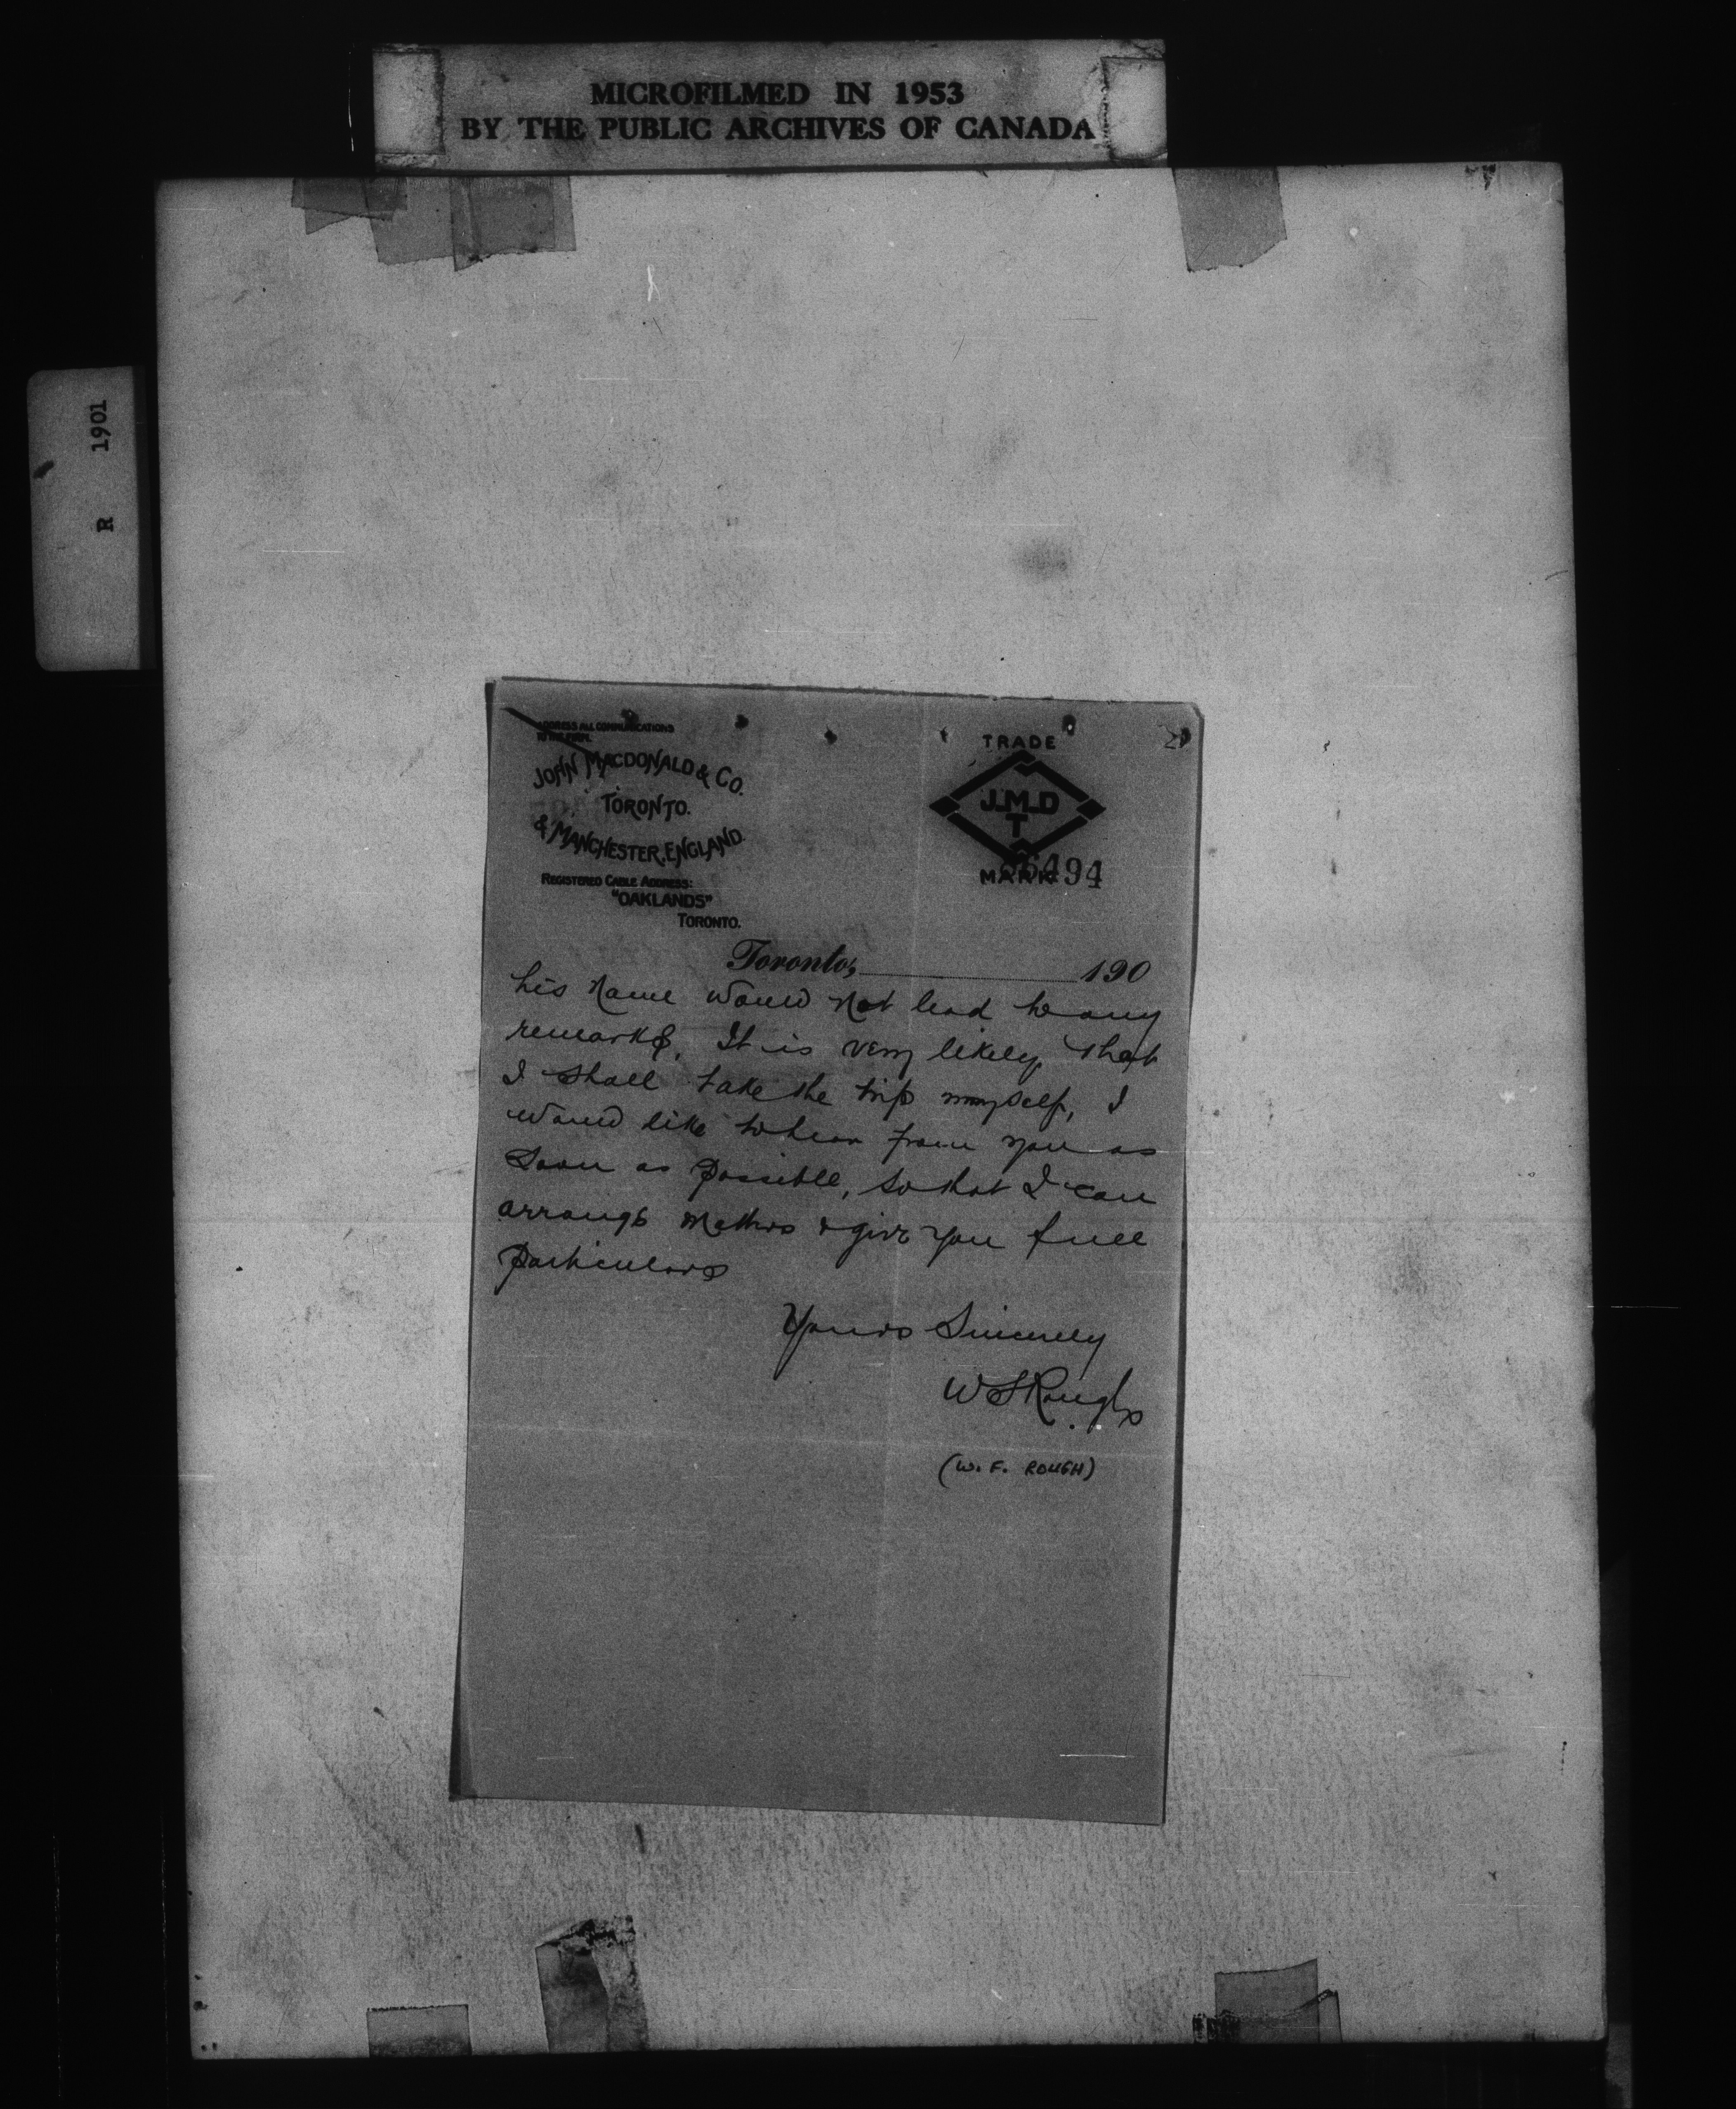 MICROFILMED IN 1953
BY THE PUBLIC ARCHIVES OF CANADA
R 1901
2
ADDRESS ALL COMMUNICATIONS
TO THE FIRM.
JOHN MACDONALD & CO.
TORONTO.
& MANCHESTER, ENGLAND.
REGISTERED CABLE ADDRESS:
"OAKLANDS"
TORONTO.
TRADE
J.M.D
T
MARK
56494
Toronto, 190
his name would not lead to any
remarks. It is very likely that
I shall take the trip myself, I
would like to hear from you as
soon as possible, so that I can
arrange matters & give you full
particulars
Yours Sincerely
W F Rough
(W. F. ROUGH)